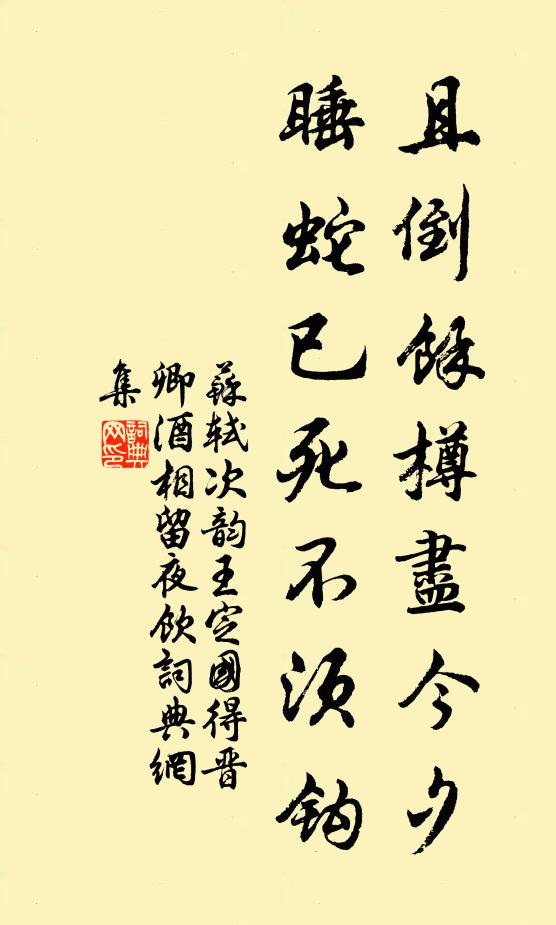 且倒餘樽盡今夕
睡蛇已死不須鉤
蘇軾次韵王定國得晋
卿酒相留夜飲詞典網
集
詞典
网印